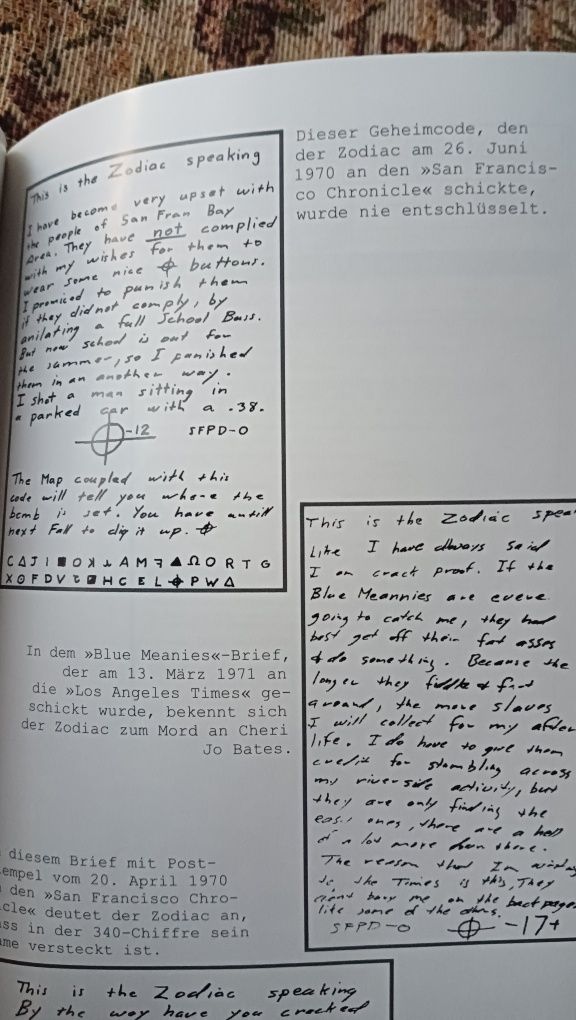 This is the Zodiac speaking
I have become very upset with
the people of San Fran Bay
Area. They have not complied
with my wishes for them to
wear some nice ⌖ buttons.
I promiced to punish them
if they did not comply, by
anilating a full School Buss.
But now school is out for
the summer, so I punished
them in an another way.
I shot a man sitting in
a parked car with a .38.
⌖-12 SFPD-0
The Map coupled with this
code will tell you where the
bomb is set. You have untill
next Fall to dig it up. ⌖
C Δ J I ■ O ꓘ ⅄ A M ꟻ ▲ Ω O R T G
X ⊙ F D V Ƨ ◪ H C E L ⌖ P W Δ
Dieser Geheimcode, den
der Zodiac am 26. Juni
1970 an den »San Francis-
co Chronicle« schickte,
wurde nie entschlüsselt.
In dem »Blue Meanies«-Brief,
der am 13. März 1971 an
die »Los Angeles Times« ge-
schickt wurde, bekennt sich
der Zodiac zum Mord an Cheri
Jo Bates.
This is the Zodiac spea
Like I have always said
I am crack proof. If the
Blue Meannies are evere
going to catch me, they had
best get off their fat asses
& do something. Because the
longer they fiddle & fart
around, the more slaves
I will collect for my after
life. I do have to give them
credit for stumbling across
my riverside activity, but
they are only finding the
easy ones, there are a hell
of a lot more down there.
The reason that Im
to the Times is this, They
dont bury me on the back pages
like some of the others.
SFPD-0 ⌖-17+
diesem Brief mit Post-
tempel vom 20. April 1970
den »San Francisco Chro-
cle« deutet der Zodiac an,
ss in der 340-Chiffre sein
ame versteckt ist.
This is the Zodiac speaking
By the way have you cracked